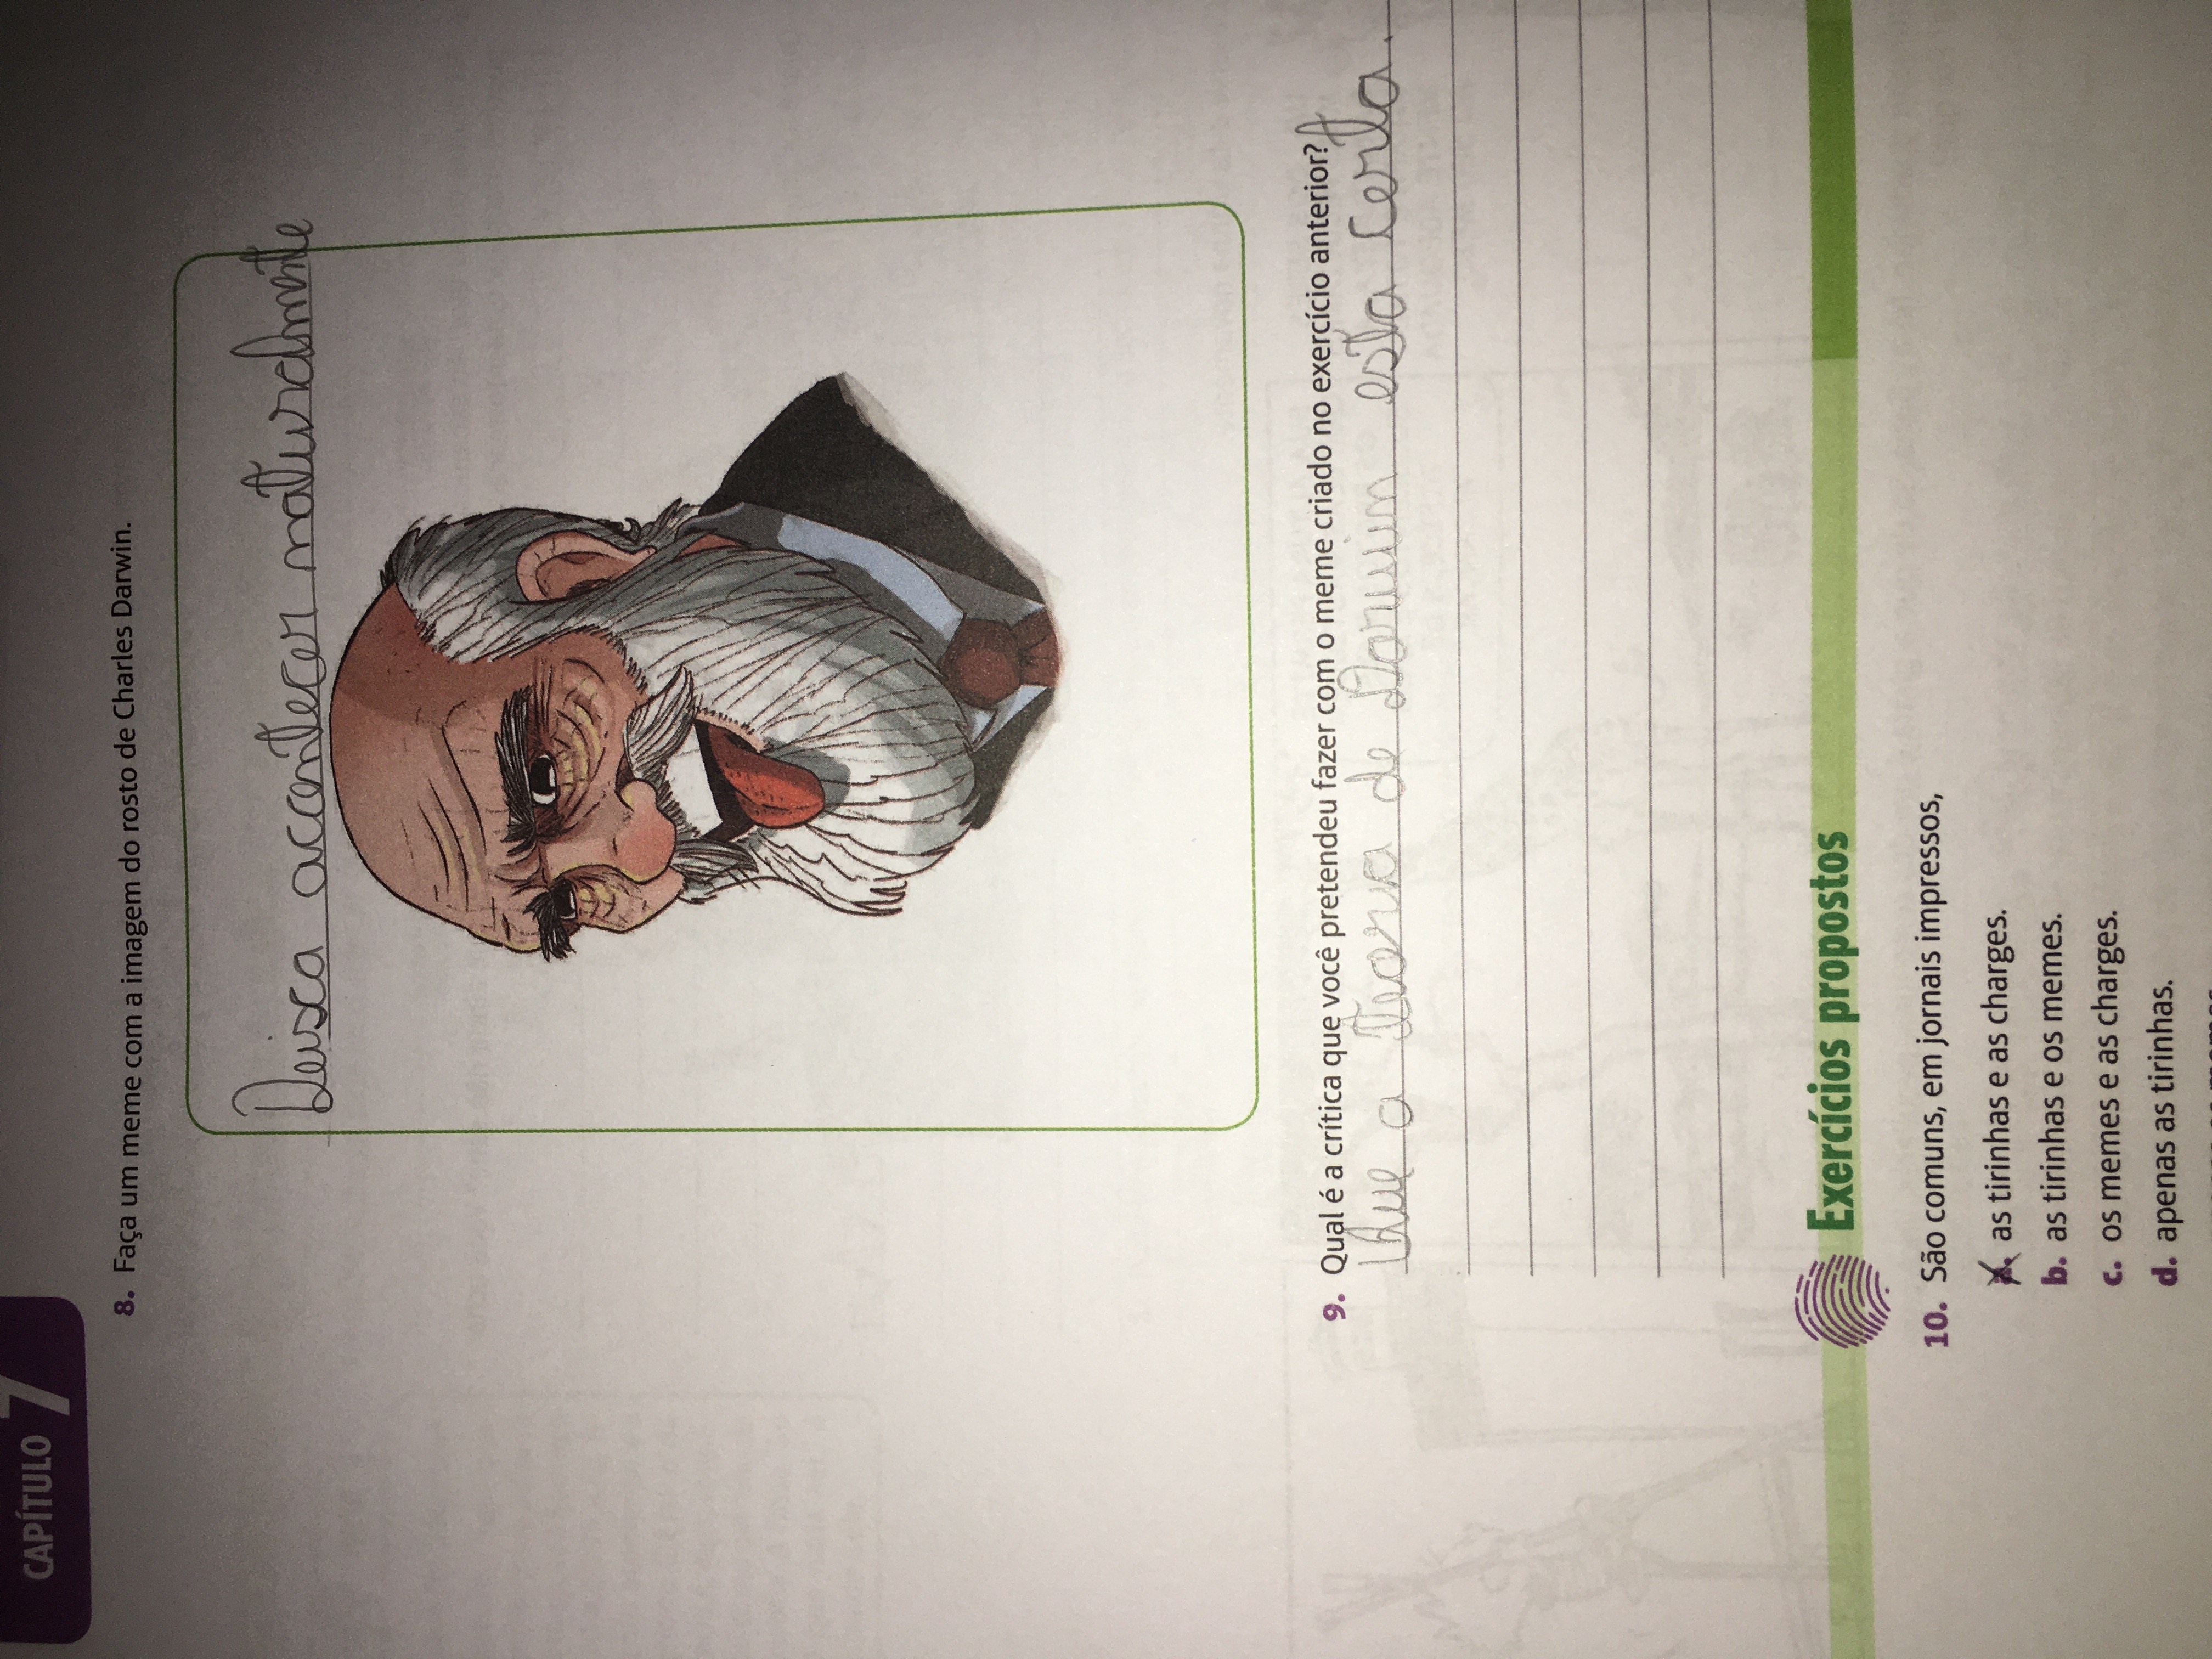 CAPÍTULO 7
8. Faça um meme com a imagem do rosto de Charles Darwin.
Deixa acontecer naturalmente
9. Qual é a crítica que você pretendeu fazer com o meme criado no exercício anterior? A
Que a teoria de Darwin esta certa.
Exercícios propostos
10. São comuns, em jornais impressos,
a. as tirinhas e as charges.
b. as tirinhas e os memes.
c. os memes e as charges.
d. apenas as tirinhas.